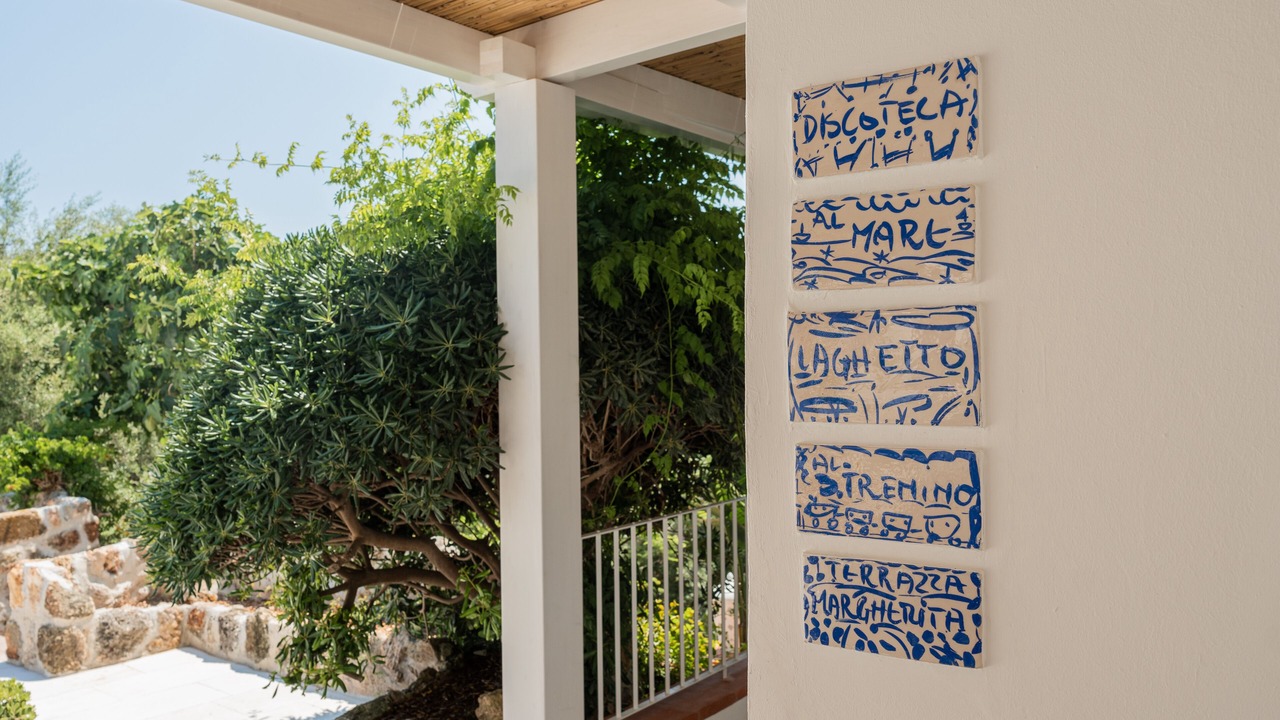 DISCOTECA
AL
MARE
LAGHETTO
AL
TRENINO
TERRAZZA
MARGHERITA